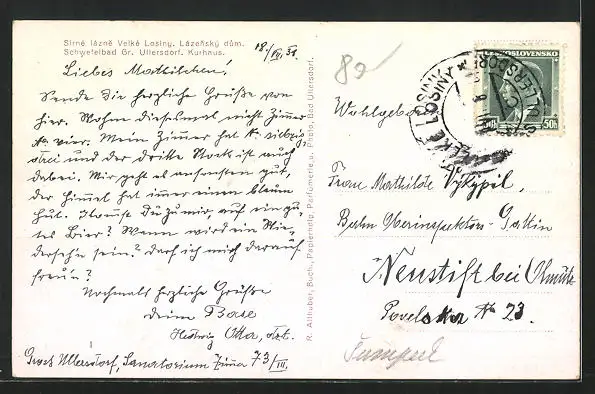 Sirné lázně Velké Losiny. Lázeňský dům.
Schwefelbad Gr. Ullersdorf. Kurhaus.
18/VII. 31.
Liebes Mathilchen!
Sende Dir herzliche Grüße von
hier. Wohne diesesmal nicht Zimmer
No vier. Mein Zimmer hat No siebzig
drei und der dritte Stock ist auch
dabei. Mir geht es ansonsten gut,
der Himmel hat immer einen blauen
Hut. Kommst Du zu mir, auf ein gu-
tes Bier? Wann wird ein Wie-
dersehn sein? darf ich mich darauf
freu'n?
Nochmals herzliche Grüße
deine Base
Hedwig Otta,
Gross Ullersdorf, Sanatorium Zima 73/III.
R. Althuber, Buch-, Papierhdlg, Parfumerie u. Photo, Bad Ullersdorf.
82
ČESKOSLOVENSKO
50h
VELKÉ LOSINY
Wohlgeboren
Frau Mathilde Vykypil,
Bahn Oberinspektors-Gattin
Neustift bei Olmütz
Povelská No 23.
Šumperk